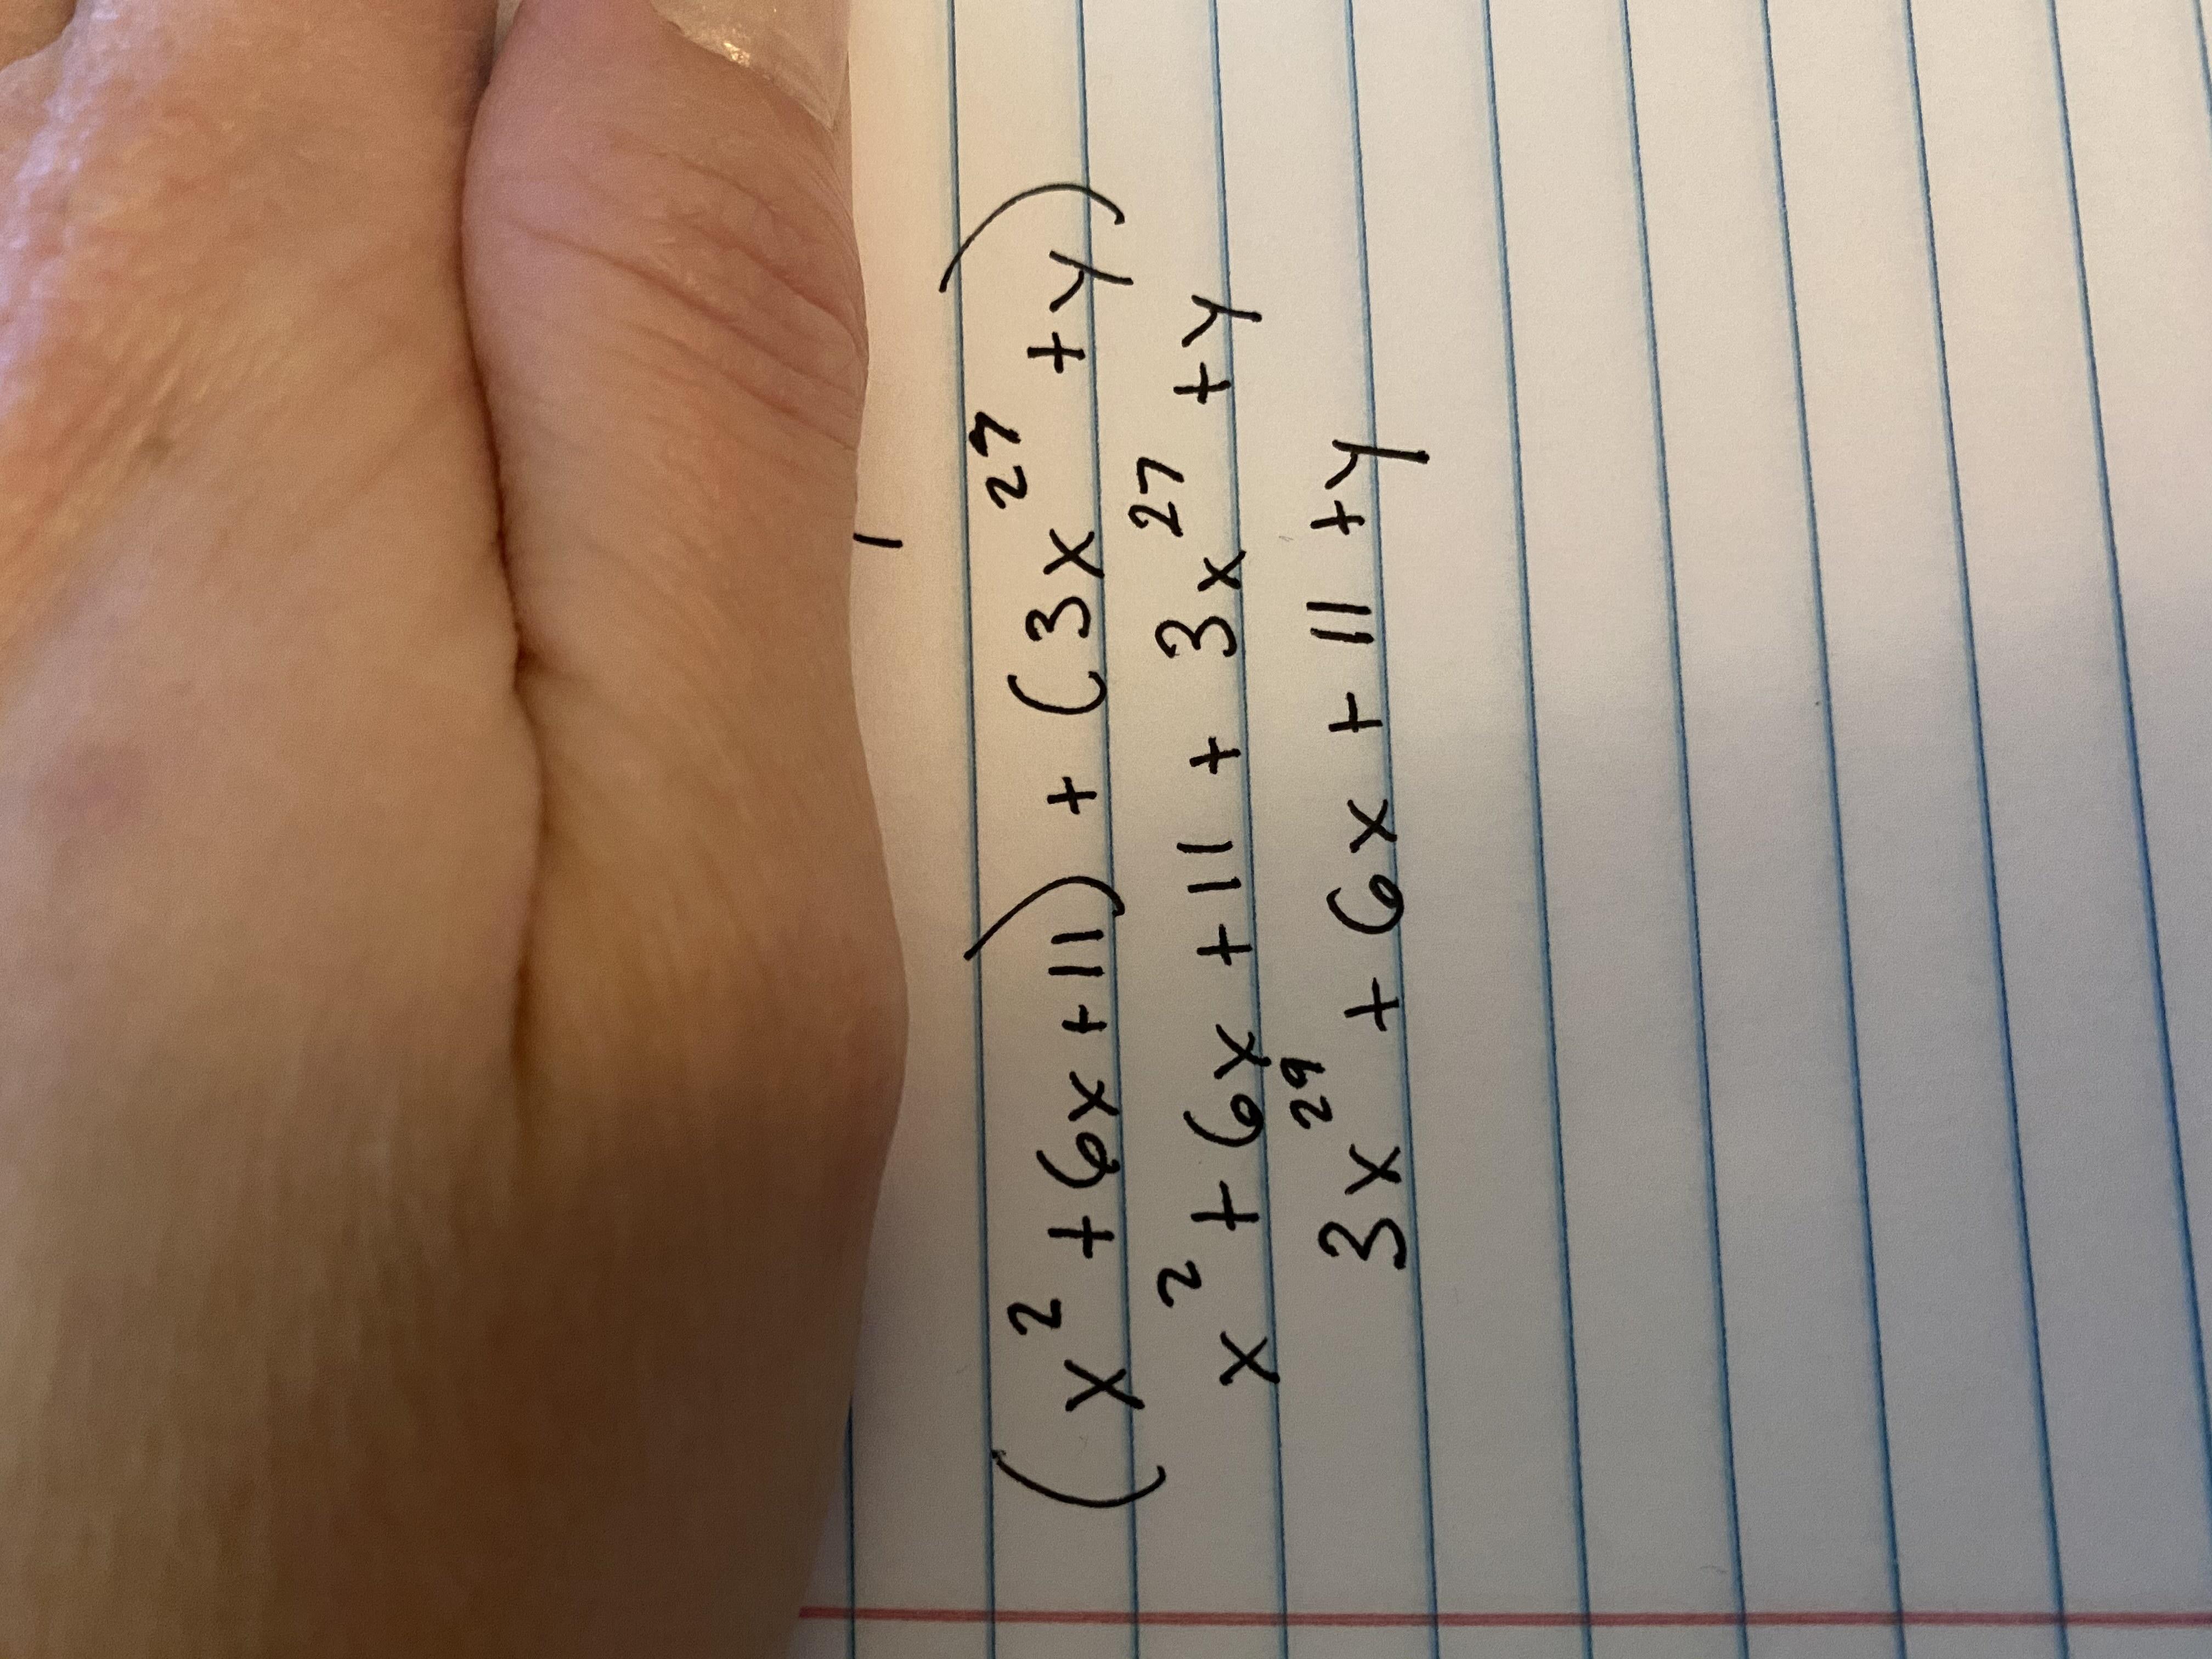 (x² + 6x + 11) + (3x²⁹ + y)
x² + 6x + 11 + 3x²⁷ + y
3x²⁹ + 6x + 11 + y